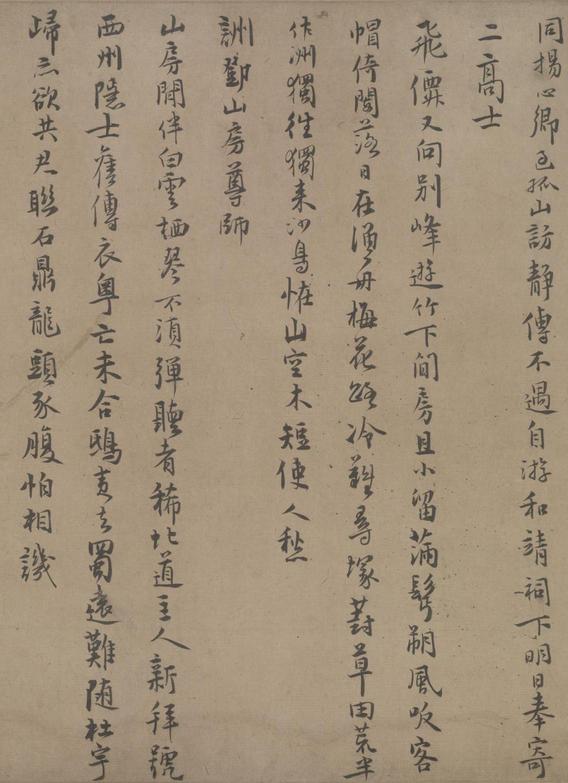 同楊心卿过孤山訪靜傳不遇自游和靖祠下明日奉寄
二高士
飛僊又向别峰遊竹下閒房且小留滿鬢朔風吹客
帽倚闌落日在漁舟梅花路冷難尋塚葑草田荒半
作洲獨往獨来沙鳥恠山空木短使人愁
詶鄧山房尊師
山房閒伴白雲栖琴不須彈聽者稀北道主人新拜號
西州隱士舊傳衣粤亡未合鴟夷去蜀遠難随杜宇
歸只欲共君聯石鼎龍頭豕腹怕相譏